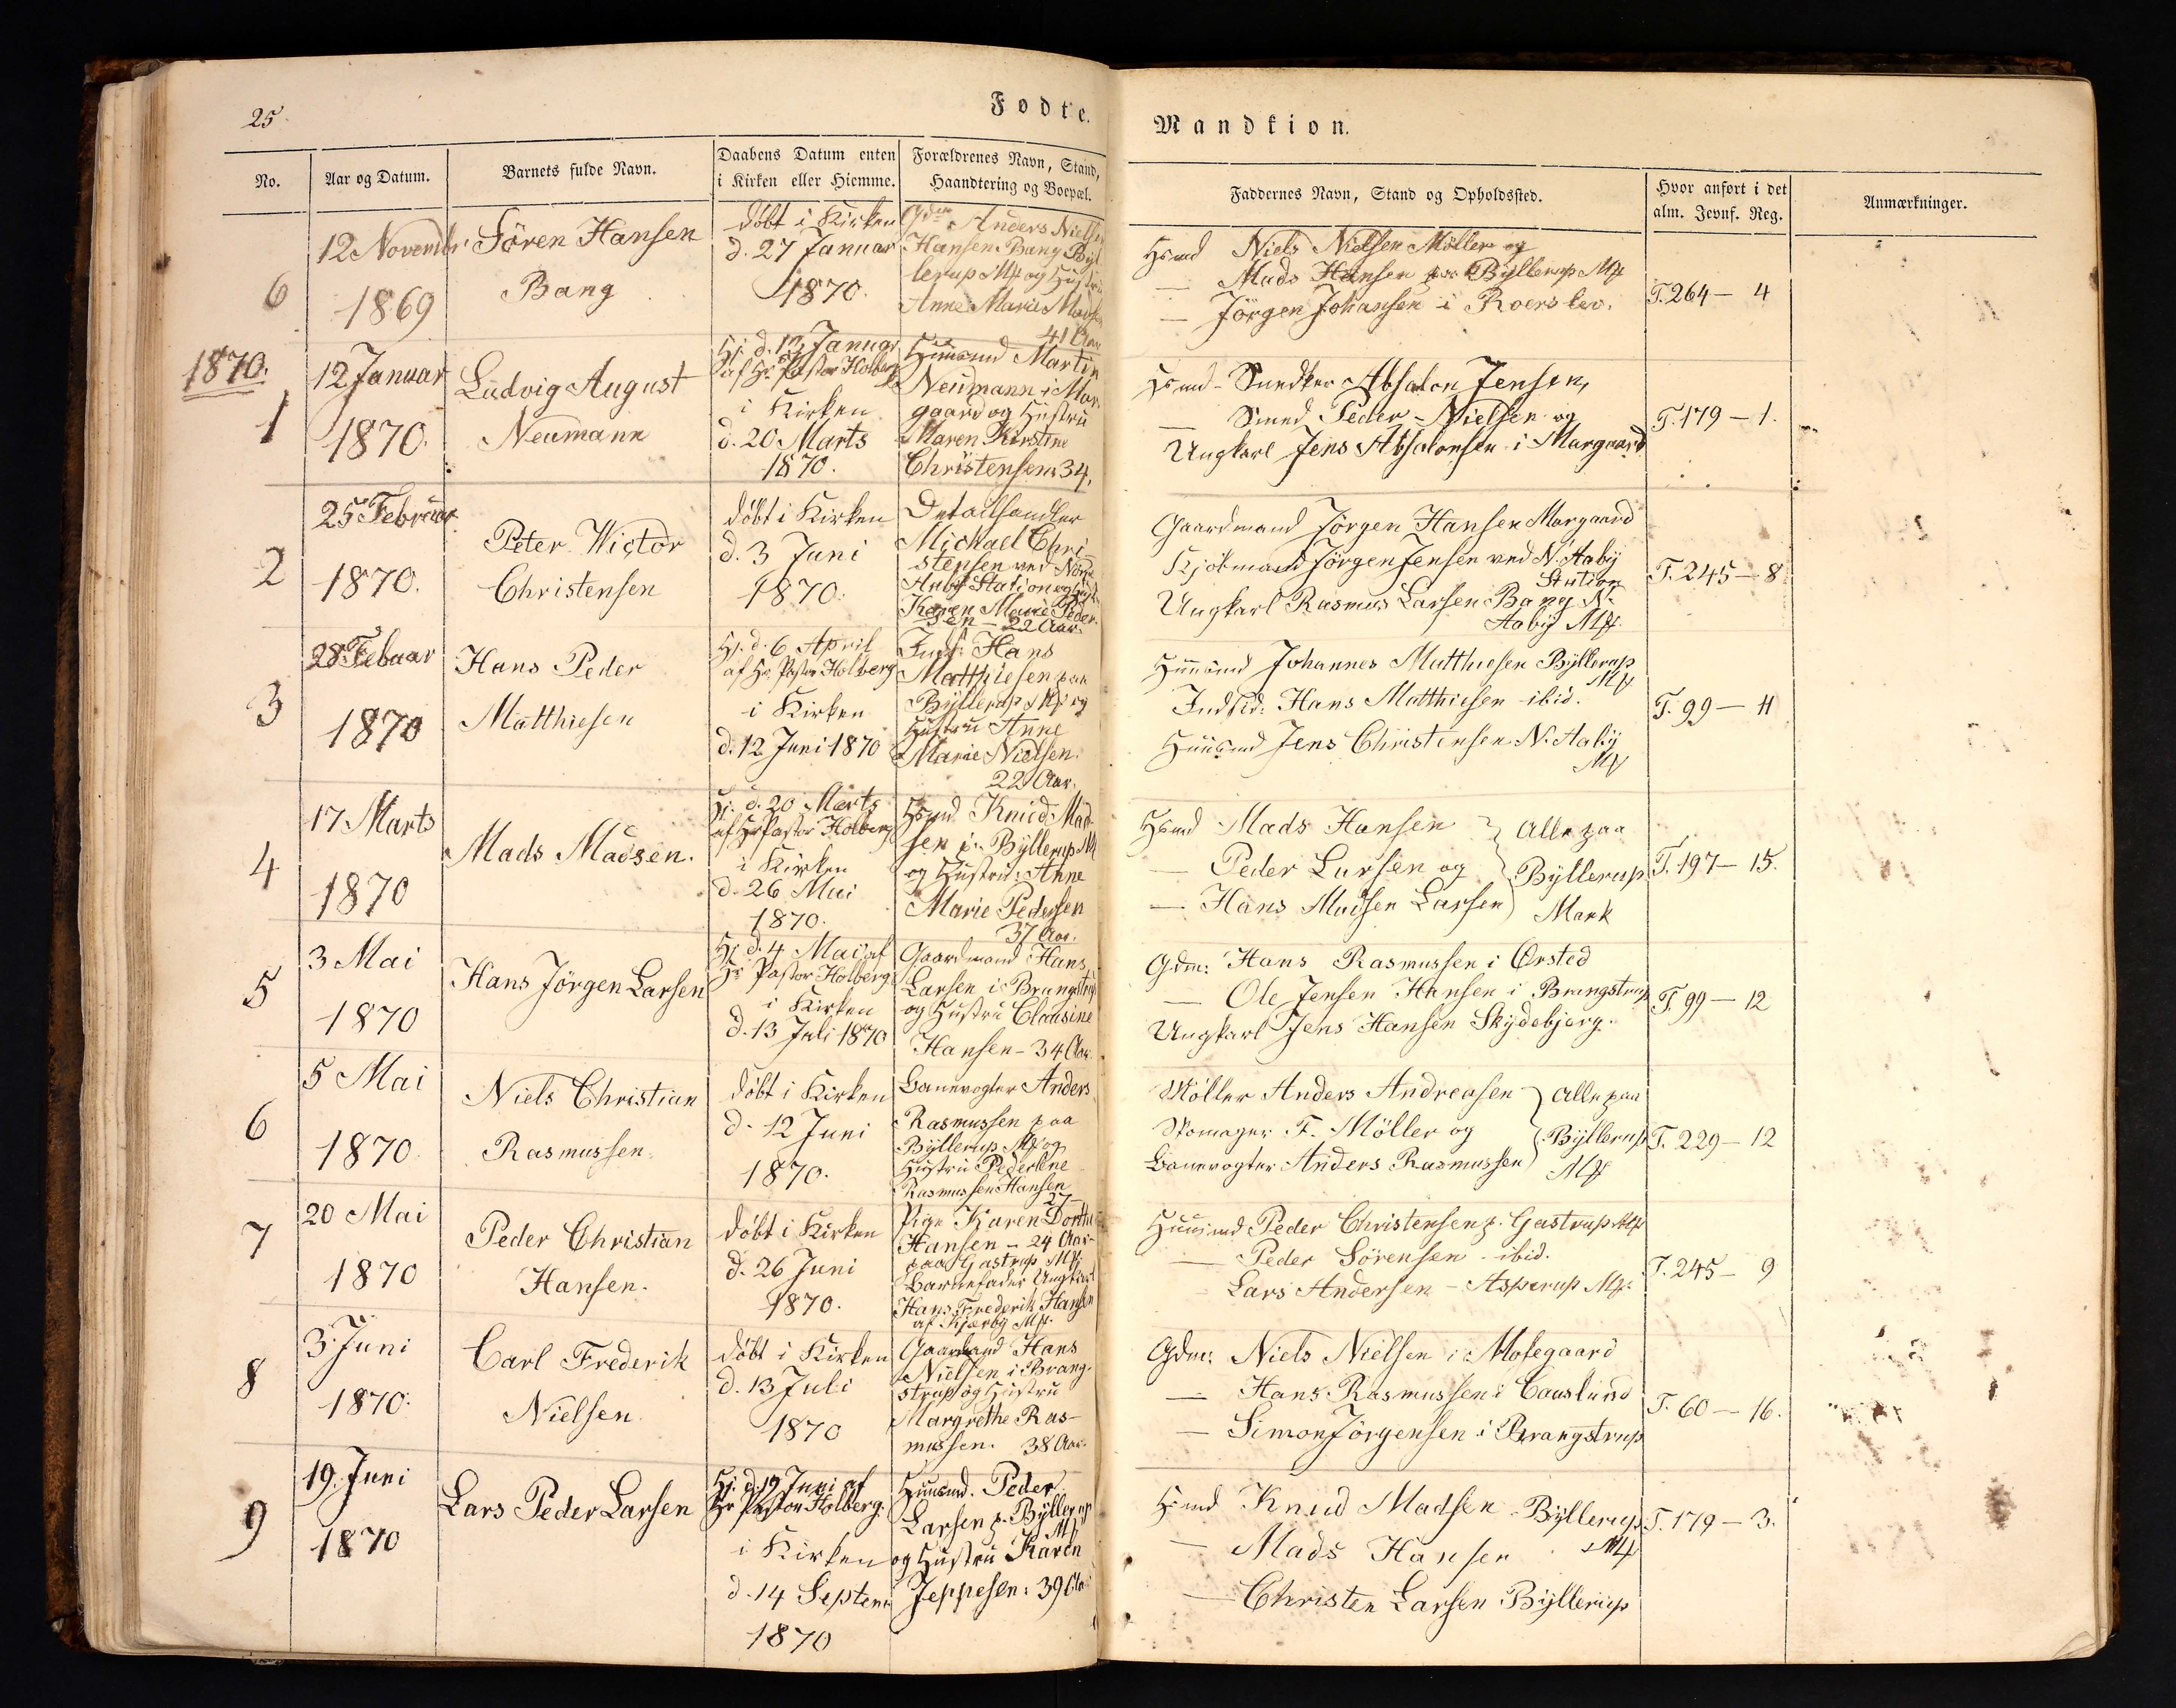 25.
Fodte.
Mandkion.
No.
Aar og Datum.
Barnets fulde Navn.
Daabens Datum enten
i Kirken eller Hiemme.
Forældrenes Navn, Stand,
Haandtering og Boepæl.
Faddernes Navn, Stand og Opholdssted.
Hvor anført i det
alm. Jevnf. Reg.
Anmærkninger.
6
12 Novembr
1869
Sören Hansen
Bang
døbt i Kirken
d. 27 Januar
1870.
Gdm Anders Nielsen
Hansen Bang Byl
lerup Mk og Hustru
Anne Marie Madsen
41 Aar
Hsmd Niels Nielsen Möller og
— Mads Hansen paa Byllerup Mk
— Jörgen Johansen i Roerslev.
T. 264 — 4
1870.
1
12 Januar
1870.
Ludvig August
Neumann
Hj. d. Januar
af Hr. Pastor Holberg
i Kirken
d. 20 Marts
1870.
Huusmd Martin
Neumann i Mar
gaard og Hustru
Maren Kirstine
Christensen 34.
Hsmd - Snedker Absalon Jensen,
— Smed Peder Nielsen og
Ungkarl Jens Absalonsen i Margaard
T. 179 — 1.
2
25 Februar
1870.
Peter Wictor
Christensen
døbt i Kirken
d. 3 Juni
1870.
Detailhandler
Michael Chri
stensen ved Nörre
Aaby Station og Hustr
Karen Marie Peder
sen — 22 Aar.
Gaardmand Jörgen Hansen Margaard
Kjöbmand Jörgen Jensen ved N. Aaby
Station
Ungkarl Rasmus Larsen Bang N.
Aaby Mk.
T. 245 — 8
3
28 Febuar
1870
Hans Peder
Matthiesen
Hj. d. 6 April
af Hr. Pastor Holberg
i Kirken
d. 12 Juni 1870
Inds. Hans
Matthiesen paa
Byllerup Mk og
Hustru Anne
Marie Nielsen.
22 Aar.
Huusmd Johannes Matthiesen Byllerup
Mk
Indsid: Hans Matthiesen ibid.
Huusmd Jens Christensen N. Aaby
Mk
T. 99 — 11
4
17 Marts
1870
Mads Madsen.
Hj. d. 20 Marts
af Hr Pastor Holberg
i Kirken
d. 26 Mai
1870.
Hsmd Knud Mad
sen p. Byllerup M
og Hustru: Anne
Marie Pedersen
37 Aar.
Hsmd Mads Hansen } Alle paa
— Peder Larsen og } Byllerup
— Hans Madsen Larsen } Mark
T. 197 — 15.
5
3 Mai
1870
Hans Jörgen Larsen
Hj d. 4 Mai af
Hr Pastor Holberg
i Kirken
d. 13 Juli 1870
Gaardmand Hans
Larsen i Brangstrup
og Hustru Clausine
Hansen — 34 Aar.
Gdm: Hans Rasmussen i Orsted
— Ole Jensen Hansen i Brangstrup
Ungkarl Jens Hansen Skydebjerg.
T. 99 — 12
6
5 Mai
1870.
Niels Christian
Rasmussen.
døbt i Kirken
d. 12 Juni
1870.
Banevogter Anders
Rasmussen paa
Byllerup Mk og
Hustru Pederlene
Rasmussen Hansen
27 —
Möller Anders Andreasen } Alle paa
Skomager F. Möller og } Byllerup
Banevogter Anders Rasmussen } Mk
T. 229 — 12
7
20 Mai
1870
Peder Christian
Hansen.
døbt i Kirken
d. 26 Juni
1870.
Pige Karen Dorthe
Hansen — 24 Aar —
paa Gastrup Mk
Barnefader Ungkarl
Hans Frederik Hansen
af Kjærby Mk.
Huusmd Peder Christensen p. Gastrup Mk
— Peder Sörensen ibid.
Lars Andersen — Asperup Mk.
T. 245 — 9
8
3 Juni
1870.
Carl Frederik
Nielsen
døbt i Kirken
d. 13 Juli
1870
Gaardmand Hans
Nielsen i Brang-
strup og Hustru
Margrethe Ras-
mussen. 38 Aar.
Gdm: Niels Nielsen i Mosegaard
— Hans Rasmussen i Causlund
— Simon Jörgensen i Brangstrup
T. 60 — 16.
9
19. Juni
1870
Lars Peder Larsen
Hj. d. 19 Juni af
Hr Pastor Holberg.
i Kirken
d. 14 Septem
1870
Huusmd. Peder
Larsen p. Byllerup
Mk
og Hustru Karen
Jeppesen: 39 Aar
Hsmd Knud Madsen Byllerup
— Mads Hansen Mk
— Christen Larsen Byllerup
T. 179 — 3.